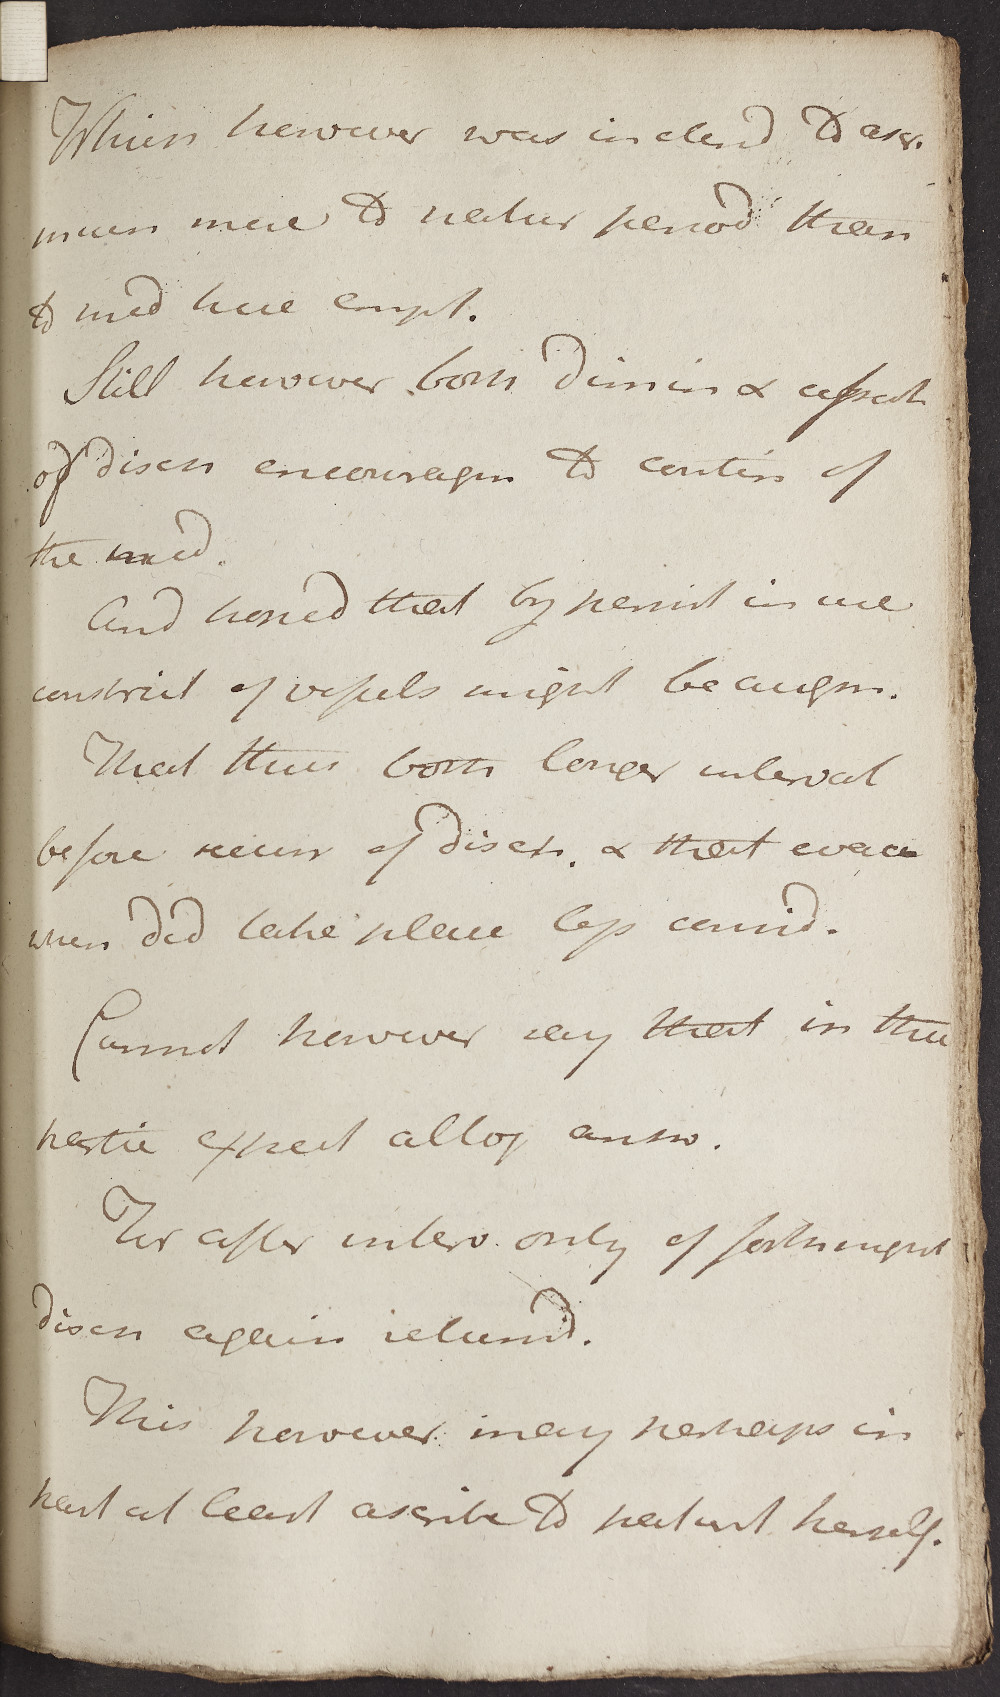 Which however was inclend to ascr.
much more to natur period than
to med here empl.
Still however both dimin & absence
of disch encouragm to contin of
the med.
And hoped that by persist in use
constrict of vessels might be augm.
That thus both longer interval
before recurr of disch. & that evac
when did take place less consid.
Cannot however say that in this
partic expect altog answ.
For after interv. only of fortnight
disch again return'd.
This however may perhaps in
part at least ascribe to patient herself.